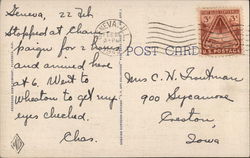 Geneva, 22 Feb
Stopped at Cham-
paign for 2 hours
and arrived here
at 6. Went to
Wheaton to get my
eyes checked.
Chas.
POST CARD
3¢
U.S. POSTAGE
Mrs C. H.
900 Sycamore
Creston,
Iowa